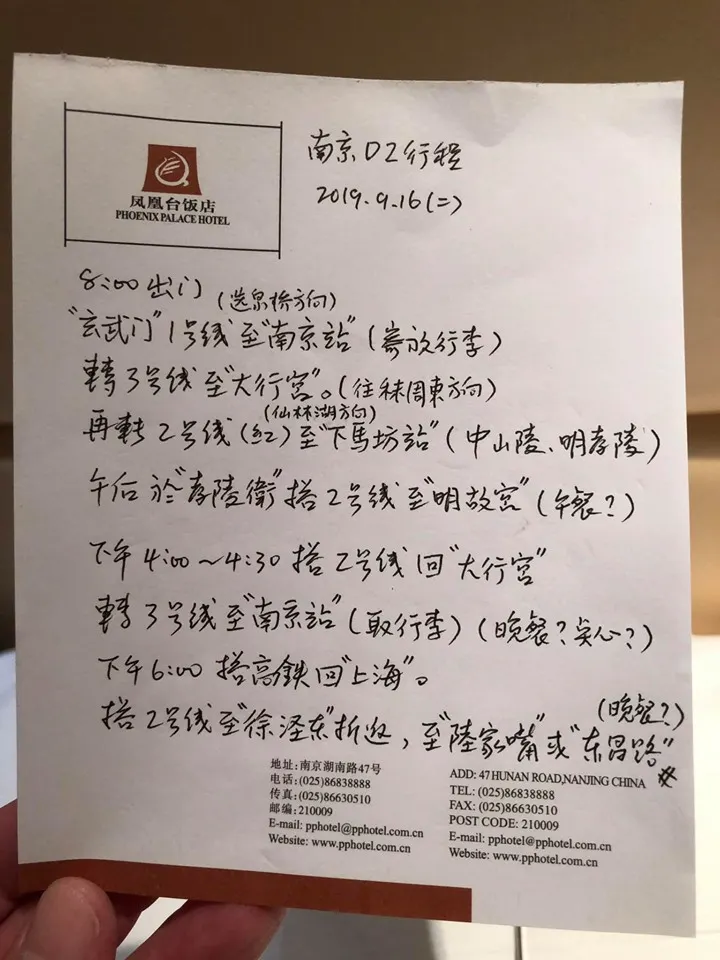 凤凰台饭店
PHOENIX PALACE HOTEL
南京D2行程
2019.9.16(二)
8:00出门
(迈皋桥方向)
"玄武门"1号线至"南京站"(寄放行李)
轉3号线至"大行宫"。(往秣周東方向)
(仙林湖方向)
再転2号线(红)至"下馬坊站"(中山陵、明孝陵)
午后於"孝陵衛"搭2号线至"明故宫"(午餐?)
下午4:00~4:30搭2号线回"大行宫"
轉3号线至"南京站"(取行李)(晚餐?点心?)
下午6:00搭高鉄回"上海"。
(晚餐?)
搭2号线至"徐泽东"折返,至"陸家嘴"或"东昌路"
地址:南京湖南路47号
电话:(025)86838888
传真:(025)86630510
邮编:210009
E-mail: pphotel@pphotel.com.cn
Website: www.pphotel.com.cn
ADD: 47 HUNAN ROAD,NANJING CHINA
TEL: (025)86838888
FAX: (025)86630510
POST CODE: 210009
E-mail: pphotel@pphotel.com.cn
Website: www.pphotel.com.cn